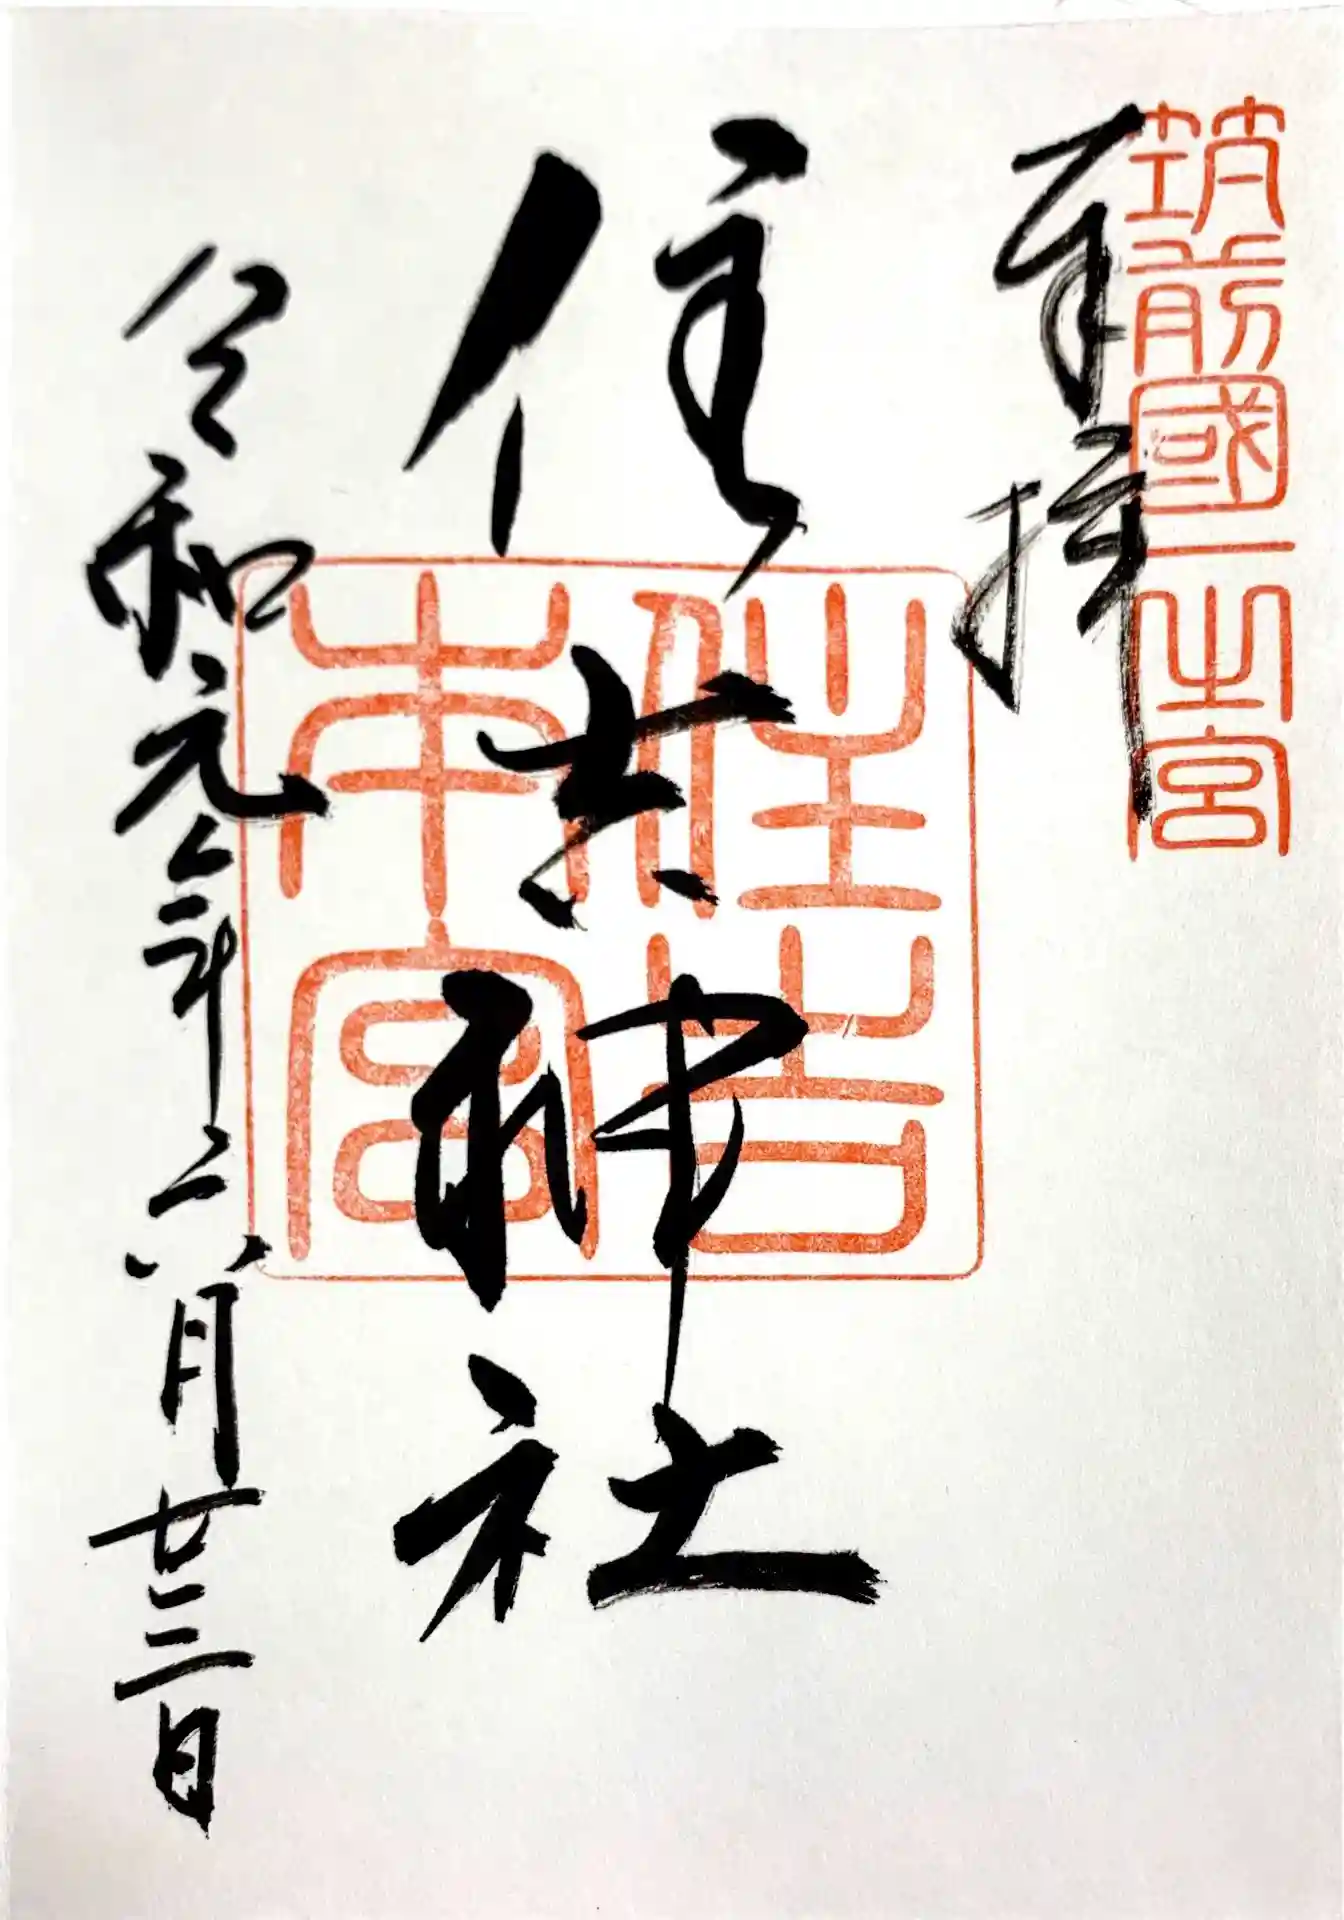 筑前國一之宮
奉拝
住吉神社
住吉本宮
令和元年六月廿三日